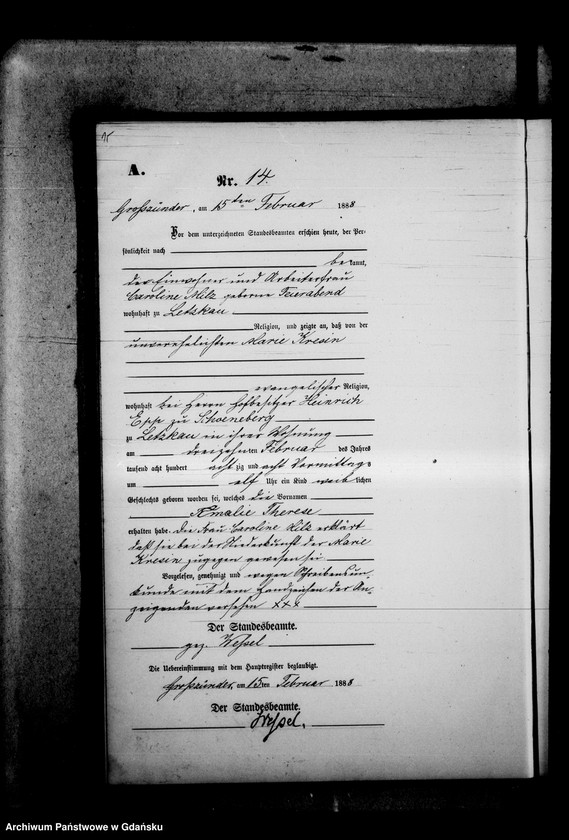 A.
Nr. 14.
Großzünder, am 15ten Februar 1888
Vor dem unterzeichneten Standesbeamten erschien heute, der Per-
sönlichkeit nach
bekannt,
die Einwohner und Arbeiterfrau
Caroline Milz geborne Feierabend
wohnhaft zu Letzkau
Religion, und zeigte an, daß von der
unverehelichten Marie Kresin
evangelischer Religion,
wohnhaft bei Herrn Hofbesitzer Heinrich
Epp zu Schoeneberg
zu Letzkau in ihrer Wohnung
am dreizehnten Februar des Jahres
tausend acht hundert achtzig und acht Vormittags
um elf Uhr ein Kind weiblichen
Geschlechts geboren worden sei, welches die Vornamen
Amalie Therese
erhalten habe. Die Frau Caroline Milz erklärt
daß sie bei der Niederkunft der Marie
Kresin zugegen gewesen sei
Vorgelesen, genehmigt und wegen Schreibensun-
kunde mit dem Handzeichen der An-
zeigenden versehen xxx
Der Standesbeamte.
gez. Wessel
Die Uebereinstimmung mit dem Hauptregister beglaubigt.
Großzünder, am 15ten Februar 1888
Der Standesbeamte.
Wessel.
Archiwum Państwowe w Gdańsku